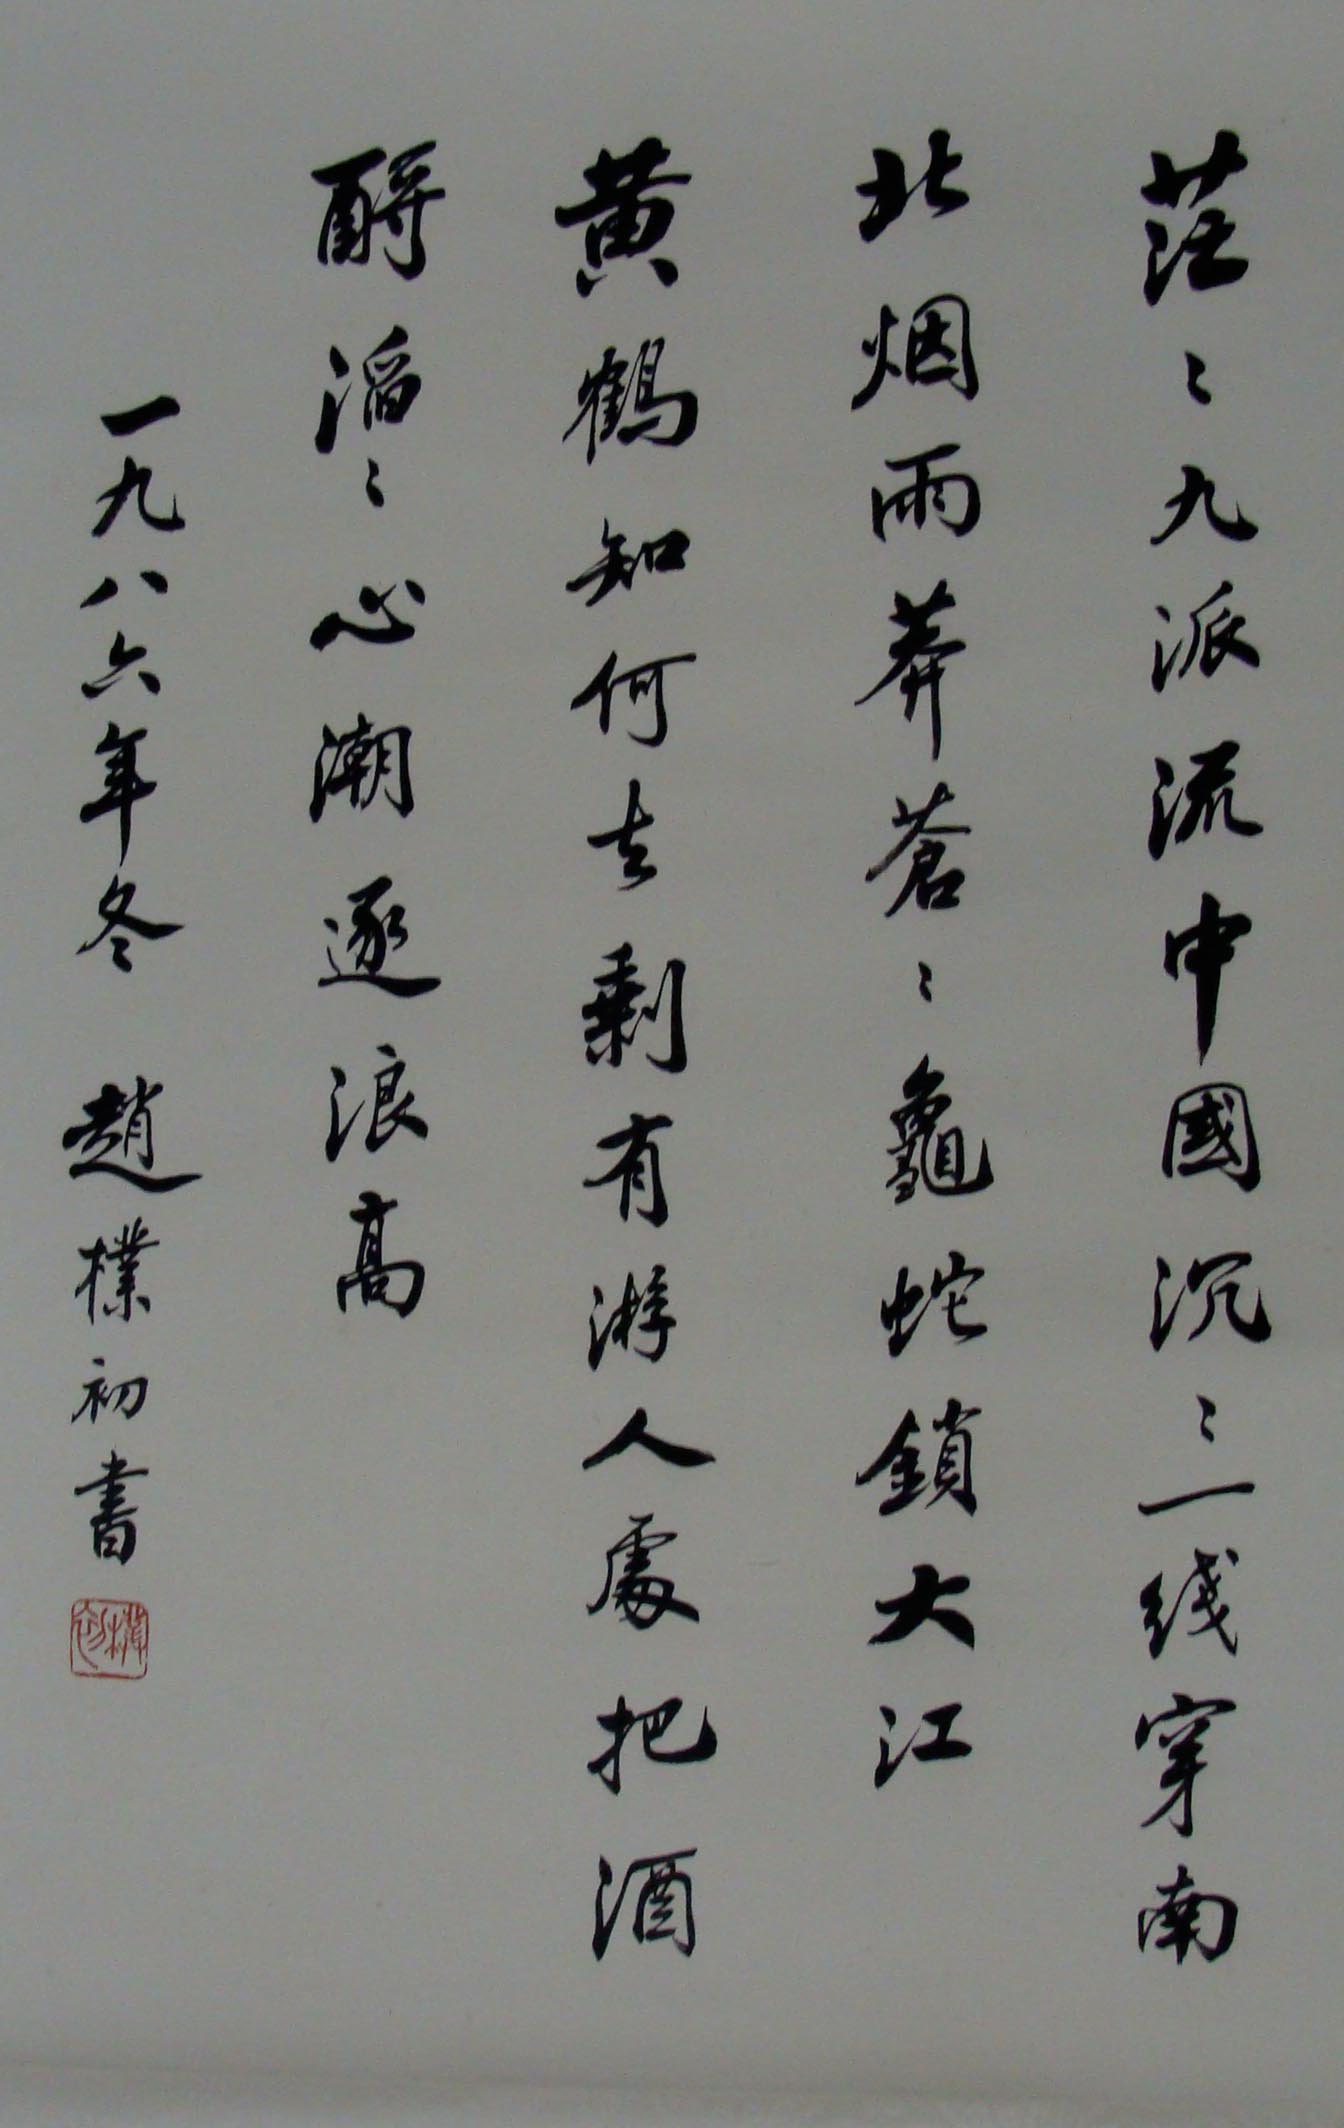 茫〻九派流中國沉〻一线穿南
北烟雨莽蒼〻龜蛇鎖大江
黃鶴知何去剩有游人處把酒
酹滔〻心潮逐浪高
一九八六年冬 趙樸初書
樸初